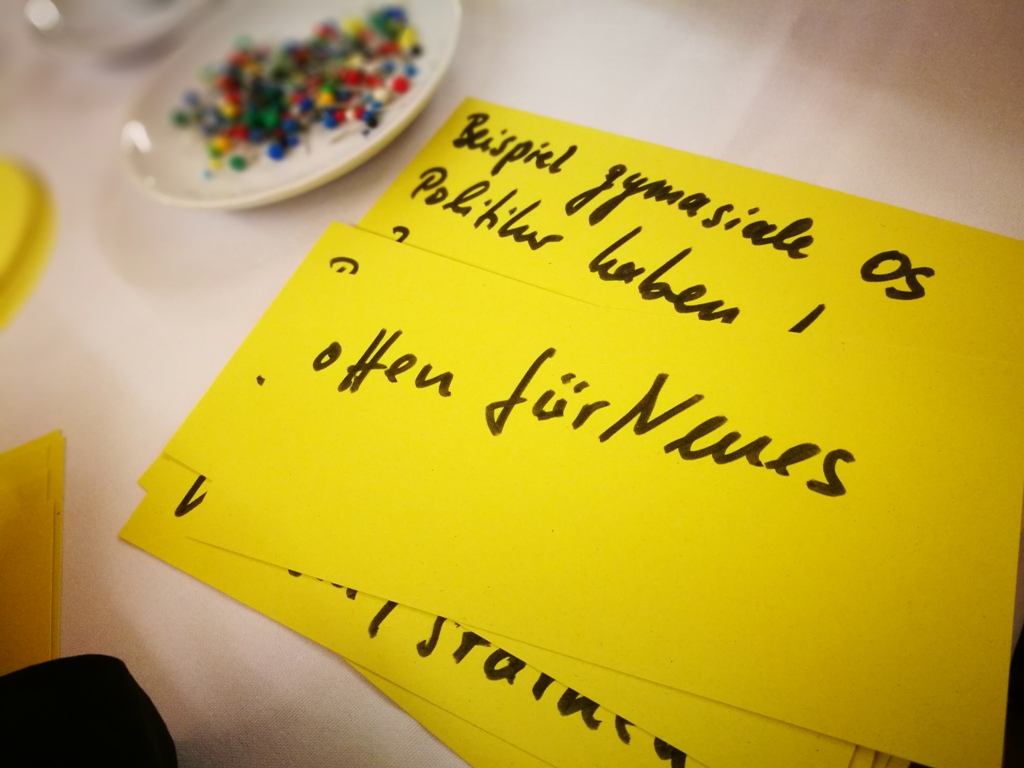 Beispiel gymasiale OS
Politiker haben !
offen für Neues